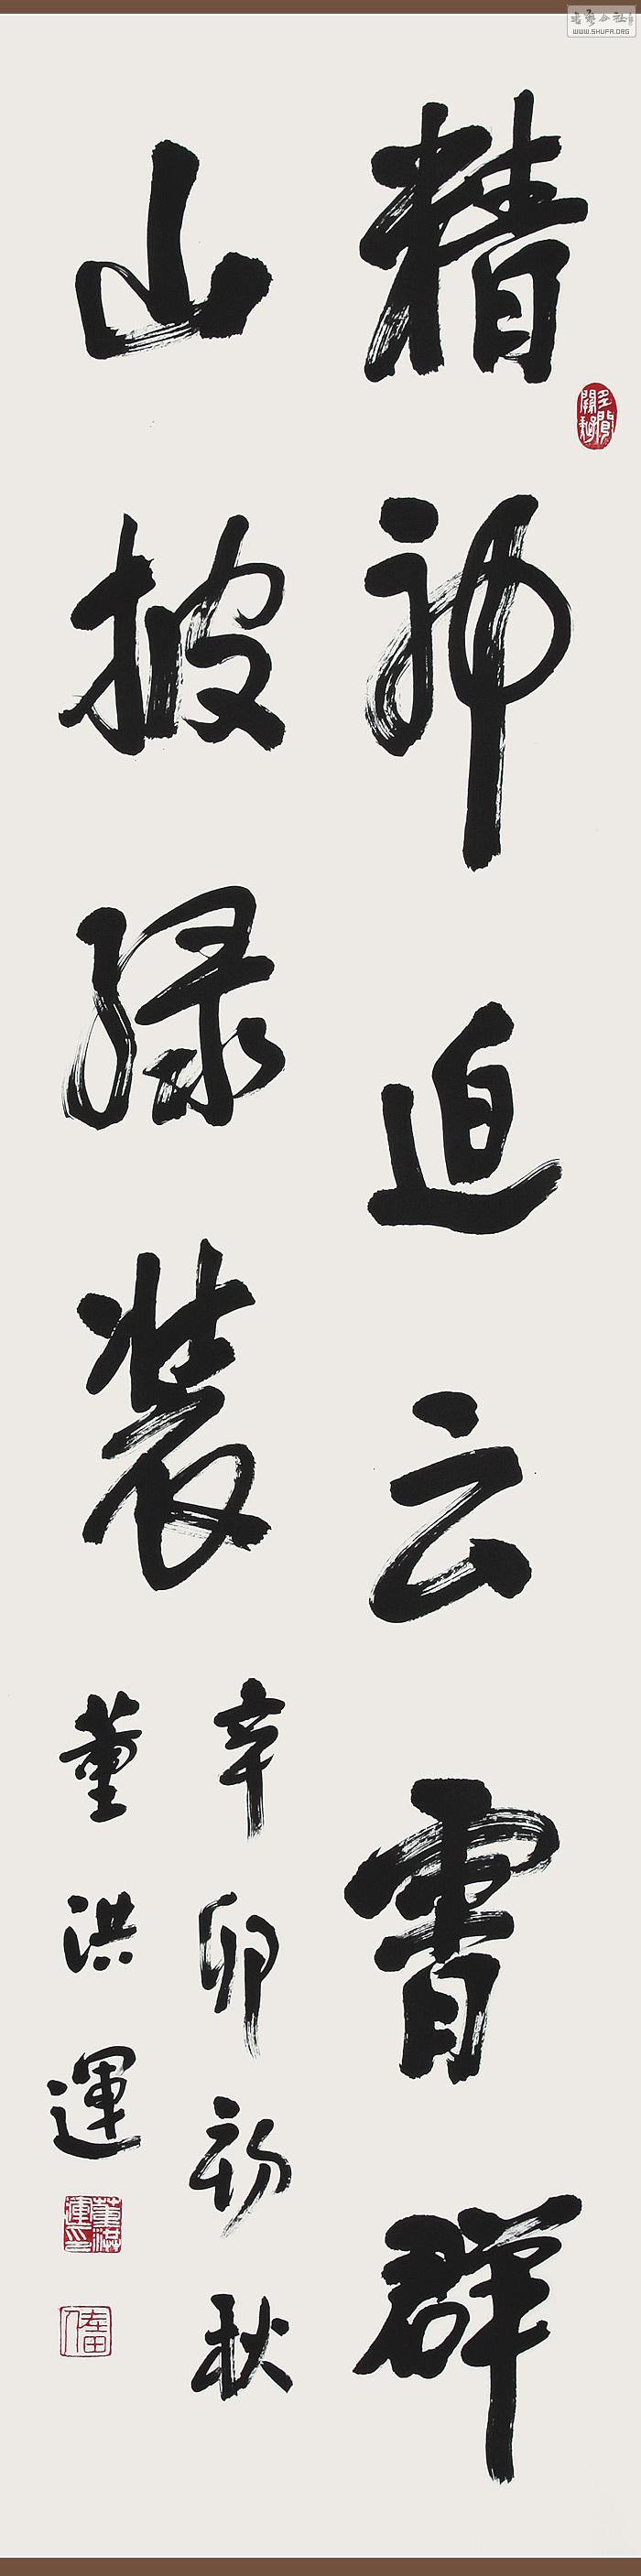 精神迫云霄群
山披绿装
辛卯初秋
董洪運
董洪運印
WWW.SHUFA.ORG